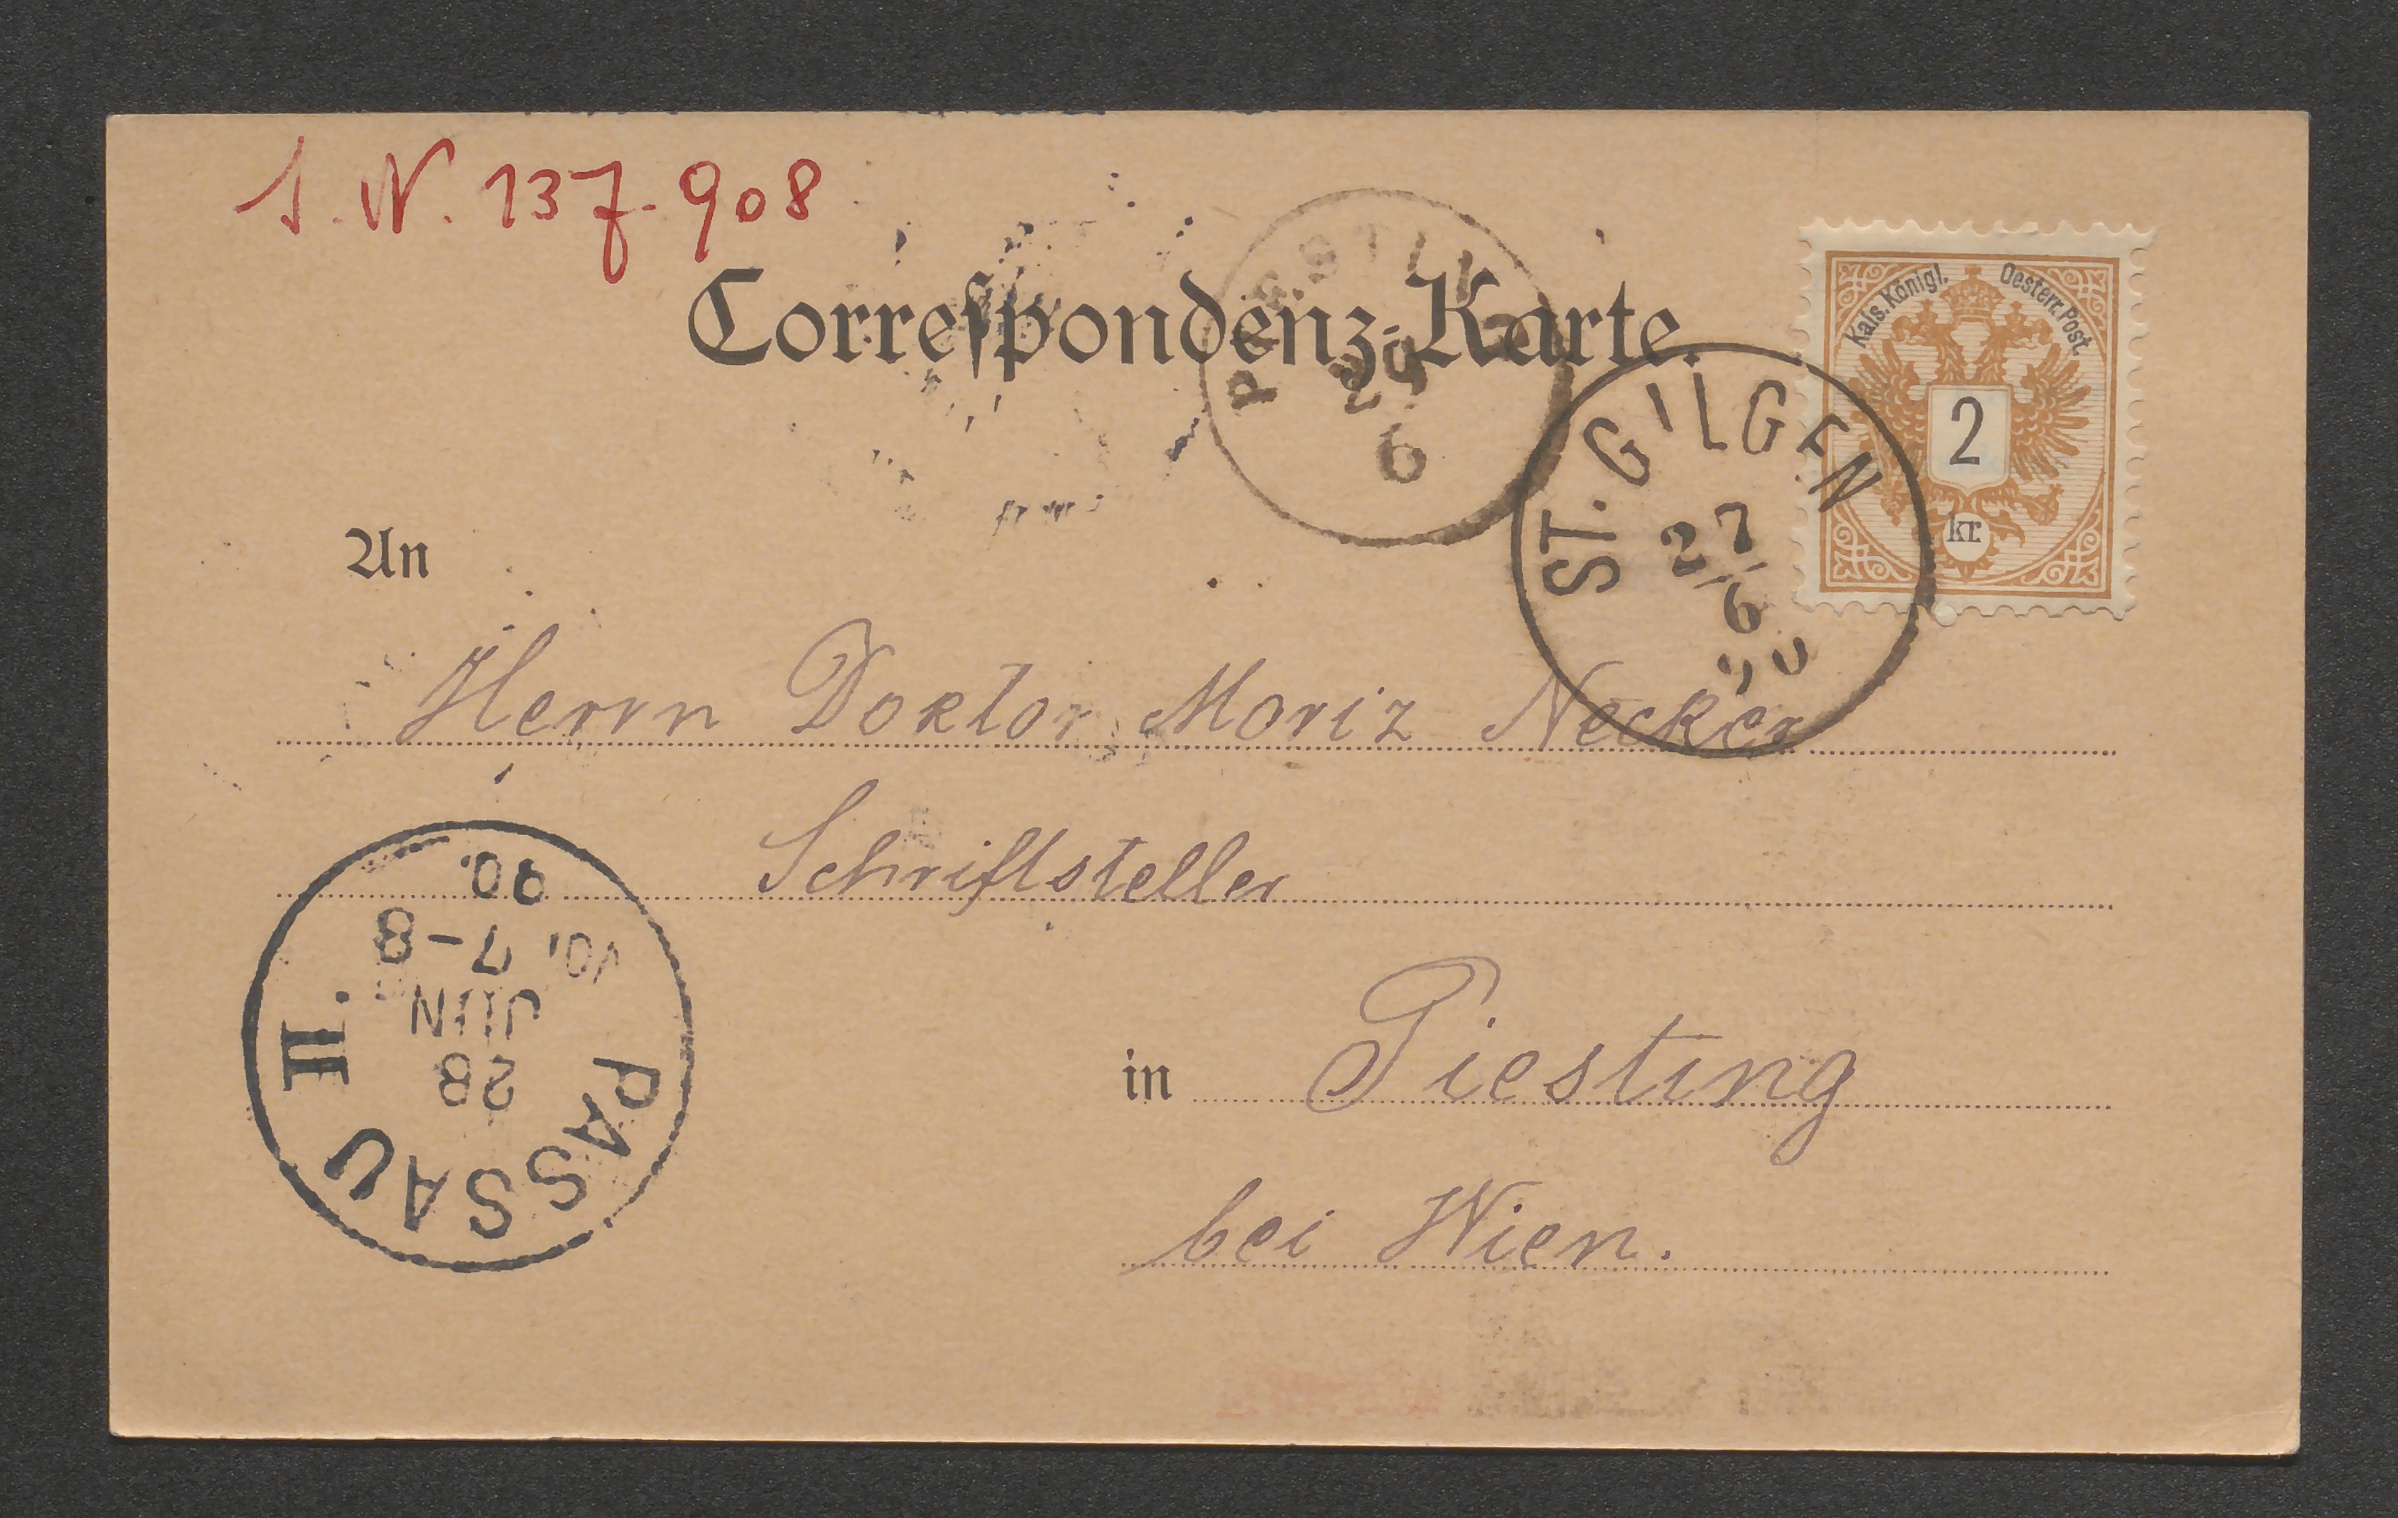 I. N. 137.908
Correspondenz-Karte.
Kais. Königl. Oesterr. Post.
2
kr.
PIESTING
29
6
ST. GILGEN
27/6
90
An
Herrn Doktor Moriz Necker
Schriftsteller
in Piesting
bei Wien.
PASSAU II.
28
JUN
Vor. 7-8
90.